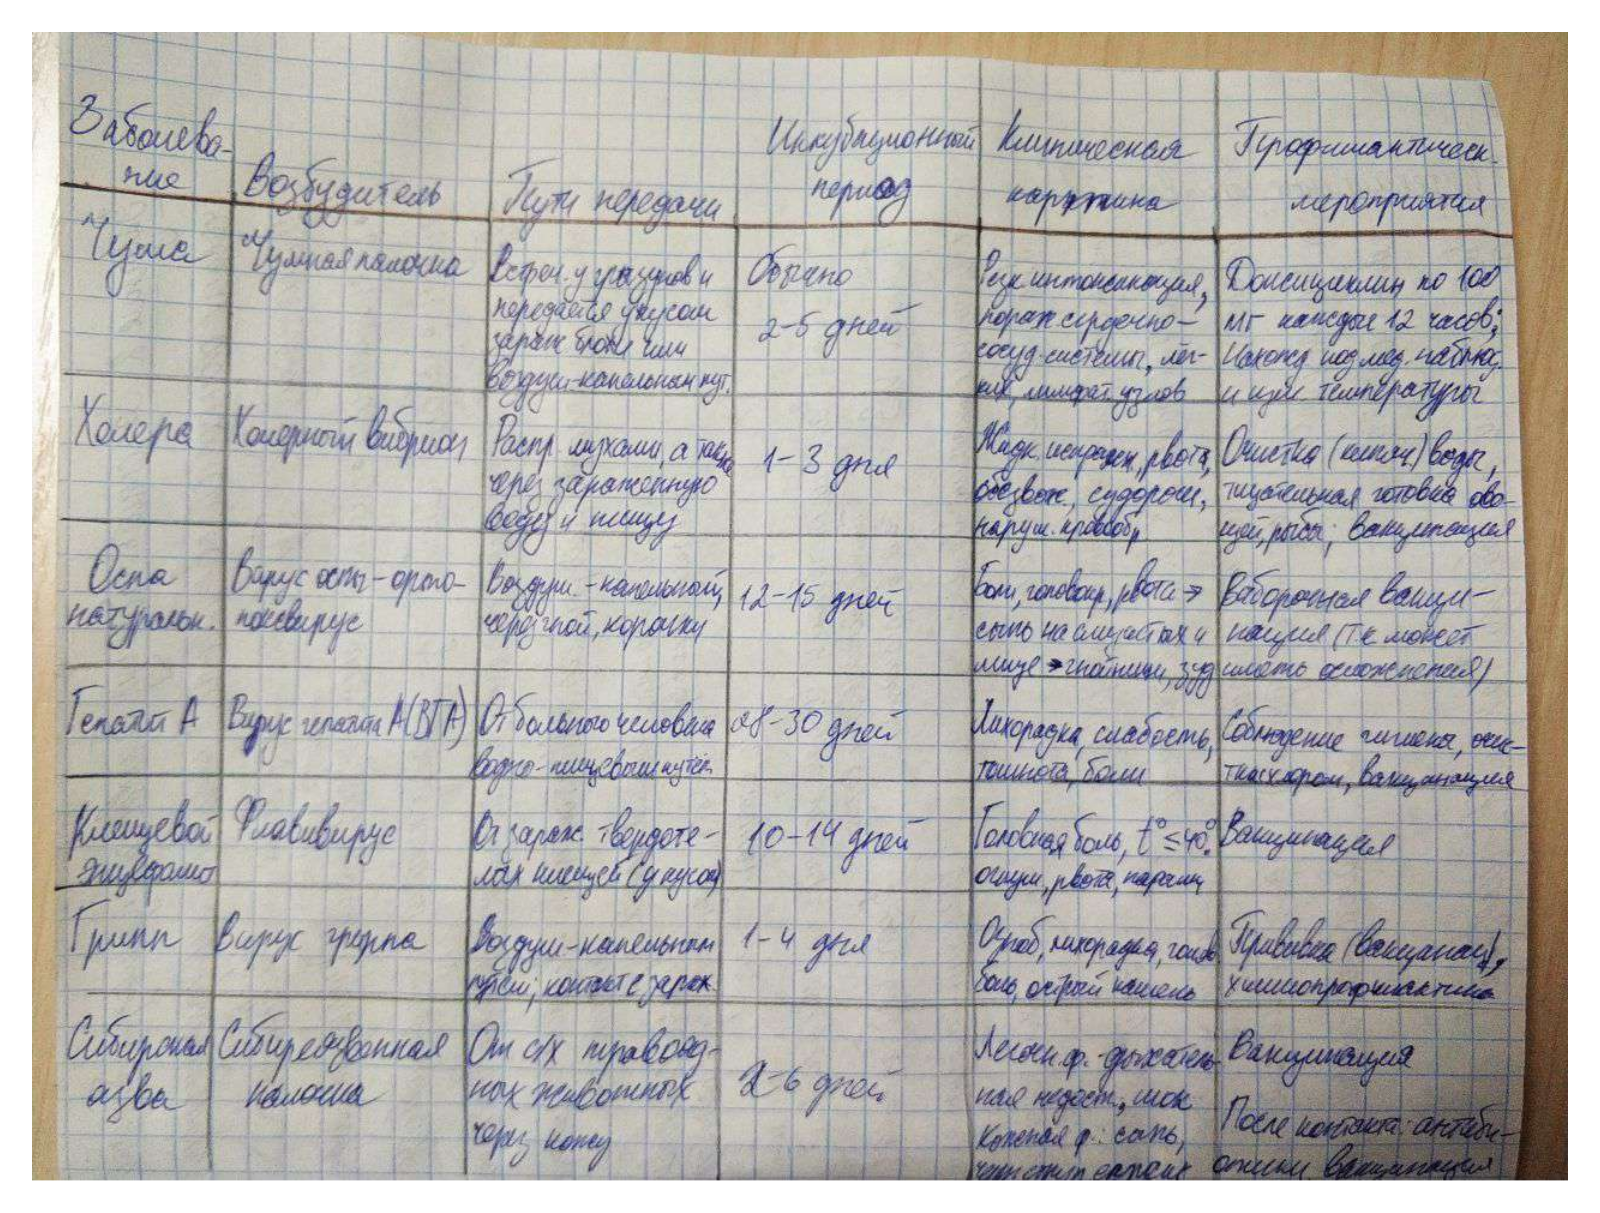 Заболева-
ние
Возбудитель
Пути передачи
Инкубационный
период
Клиническая
картина
Профилактическ.
мероприятия
Чума
Чумная палочка
Встреч. у грызунов и
передаётся укусом
зараж. блохи или
воздуш-капельным пут.
Обычно
2-5 дней
Резк. интоксикация,
пораж сердечно-
сосуд системы, лёг-
ких, лимфат. узлов
Доксициклин по 100
мг каждые 12 часов;
Нахожд под мед. наблюд.
и изм температуры
Холера
Холерный вибрион
Распр. мухами, а также
через зараженную
воду и пищу
1-3 дня
Жидк. испражн, рвота,
обезвож., судороги,
наруш. кровообр
Очистка (кипяч) воды,
тщательная готовка ово-
щей, рыбы; вакцинация
Оспа
натуральн.
Вирус оспы-орто-
поксвирус
Воздуш.-капельный,
через гной, корочку
12-15 дней
Боли, головокр, рвота →
сыпь на слизистых и
лице → гнойники, зуд
Выборочная вакци-
нация (т к может
иметь осложнения)
Гепатит А
Вирус гепатита А(ВГА)
От больного человека
водно-пищевым путём
28-30 дней
Лихорадка, слабость,
тошнота, боли
Соблюдение гигиены,
вакцинация
Клещевой
энцефалит
Флавивирус
От зараж. твердоте-
лых клещей (укусом)
10-14 дней
Головная боль, t° ≤ 40°.
рвота, паралич
Вакцинация
Грипп
Вирус гриппа
Воздуш-капельным
путем; контакт с зараж.
1-4 дня
Озноб, лихорадка, голов
боль, острый кашель
Прививка (вакцинац),
химиопрофилактика
Сибирская
язва
Сибиреязвенная
палочка
От с/х травояд-
ных животных
через кожу
2-6 дней
Легочн ф.-дыхатель-
ная недост., шок
Кожная ф.: сыпь,
Вакцинация
После контакта: антиби-
отики, вакцинация